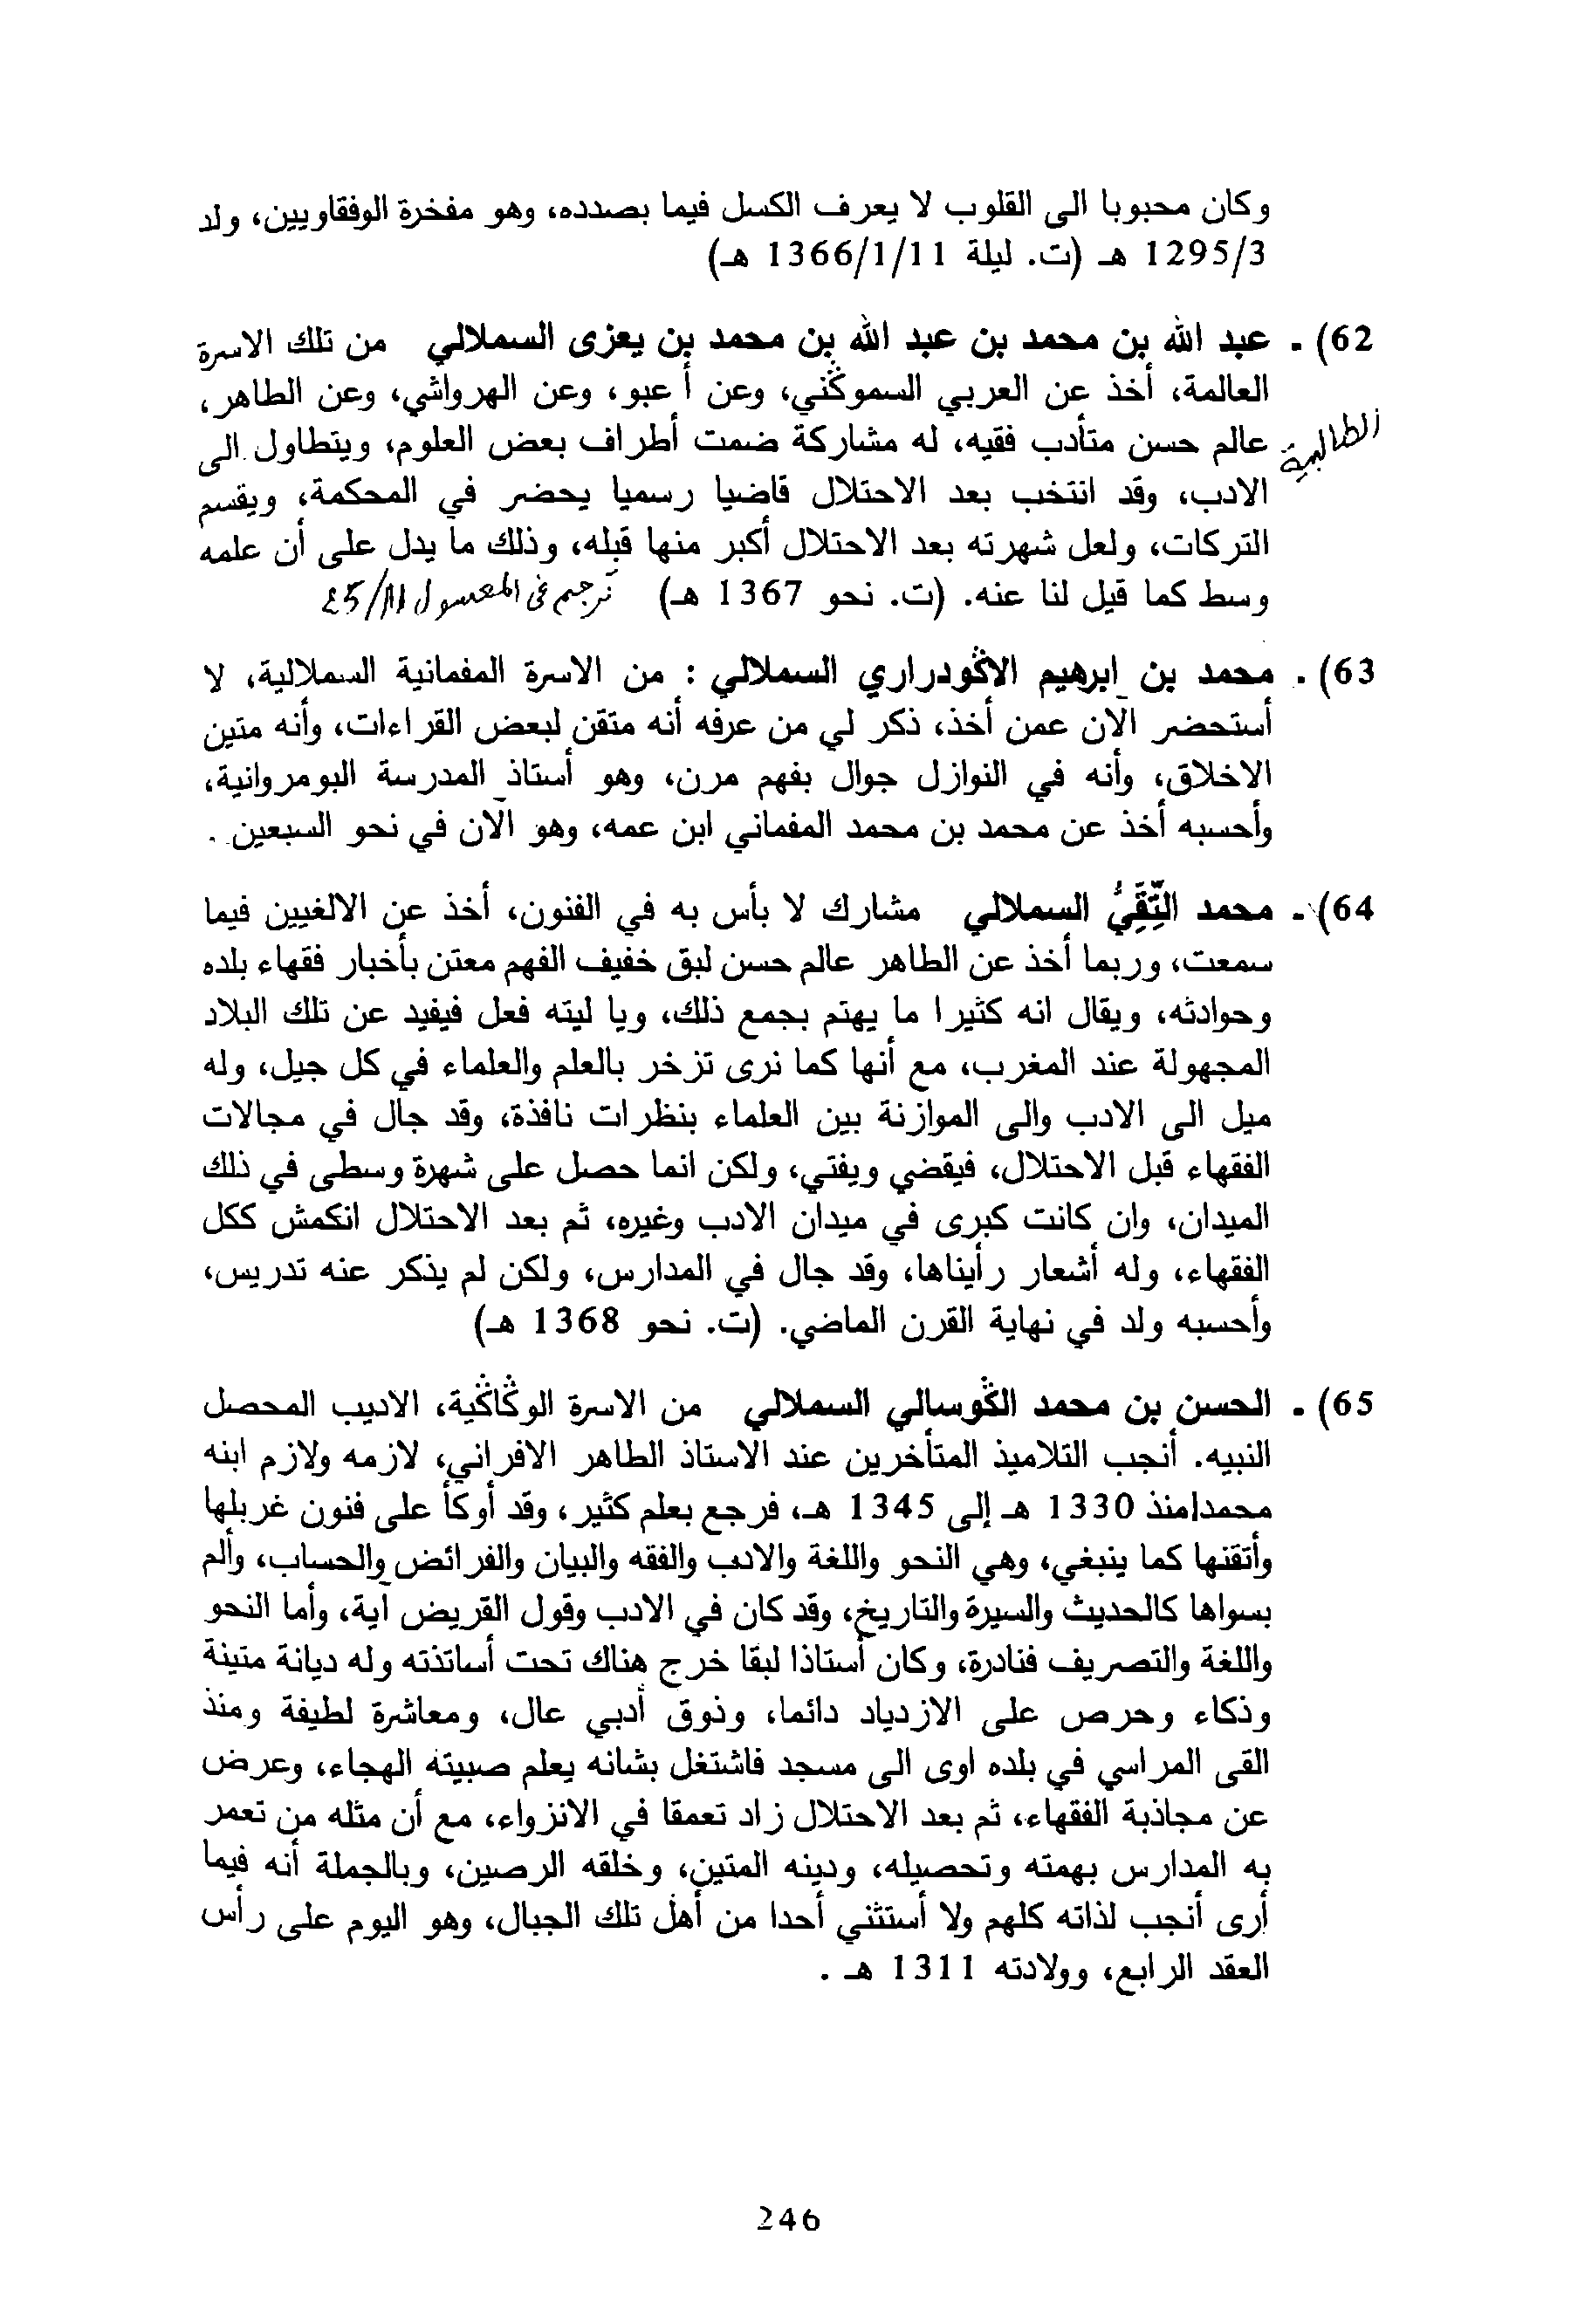 وكان محبوبا الى القلوب لا يعرف الكسل فيما بصدده، وهو مفخرة الوفقاويين، ولد
1295/3 هـ (ت. ليلة 1366/1/11 هـ)
62) . عبد الله بن محمد بن عبد الله بن محمد بن يعزى السملالي من تلك الاسرة
العالمة، أخذ عن العربي السموڭني، وعن أ عبو، وعن الهرواشي، وعن الطاهر،
الطالبية
عالم حسن متأدب فقيه، له مشاركة ضمت أطراف بعض العلوم، ويتطاول الى
الادب، وقد انتخب بعد الاحتلال قاضيا رسميا يحضر في المحكمة، ويقسم
التركات، ولعل شهرته بعد الاحتلال أكبر منها قبله، وذلك ما يدل على أن علمه
وسط كما قيل لنا عنه. (ت. نحو 1367 هـ) ترجم في المعسول
63) . محمد بن ابرهيم الاڭودراري السملالي : من الاسرة المفمانية السملالية، لا
أستحضر الآن عمن أخذ، ذكر لي من عرفه أنه متقن لبعض القراءات، وأنه متين
الاخلاق، وأنه في النوازل جوال بفهم مرن، وهو أستاذ المدرسة البومروانية،
وأحسبه أخذ عن محمد بن محمد المفماني ابن عمه، وهو الآن في نحو السبعين .
64) . محمد التِّقِيُّ السملالي مشارك لا بأس به في الفنون، أخذ عن الالغيين فيما
سمعت، وربما أخذ عن الطاهر عالم حسن لبق خفيف الفهم معتن بأخبار فقهاء بلده
وحوادثه، ويقال انه كثيرا ما يهتم بجمع ذلك، ويا ليته فعل فيفيد عن تلك البلاد
المجهولة عند المغرب، مع أنها كما نرى تزخر بالعلم والعلماء في كل جيل، وله
ميل الى الادب والى الموازنة بين العلماء بنظرات نافذة، وقد جال في مجالات
الفقهاء قبل الاحتلال، فيقضي ويفتي، ولكن انما حصل على شهرة وسطى في ذلك
الميدان، وان كانت كبرى في ميدان الادب وغيره، ثم بعد الاحتلال انكمش ككل
الفقهاء، وله أشعار رأيناها، وقد جال في المدارس، ولكن لم يذكر عنه تدريس،
وأحسبه ولد في نهاية القرن الماضي. (ت. نحو 1368 هـ)
65) . الحسن بن محمد الڭوسالي السملالي من الاسرة الوڭاڭية، الاديب المحصل
النبيه. أنجب التلاميذ المتأخرين عند الاستاذ الطاهر الافراني، لازمه ولازم ابنه
محمدامنذ 1330 هـ إلى 1345 هـ، فرجع بعلم كثير، وقد أوكأ على فنون غربلها
وأتقنها كما ينبغي، وهي النحو واللغة والادب والفقه والبيان والفرائض والحساب، وألم
بسواها كالحديث والسيرة والتاريخ، وقد كان في الادب وقول القريض آية، وأما النحو
واللغة والتصريف فنادرة، وكان أستاذا لبقا خرج هناك تحت أساتذته وله ديانة متينة
وذكاء وحرص على الازدياد دائما، وذوق أدبي عال، ومعاشرة لطيفة ومنذ
القى المراسي في بلده اوى الى مسجد فاشتغل بشانه يعلم صبيته الهجاء، وعرض
عن مجاذبة الفقهاء، ثم بعد الاحتلال زاد تعمقا في الانزواء، مع أن مثله من تعمر
به المدارس بهمته وتحصيله، ودينه المتين، وخلقه الرصين، وبالجملة أنه فيما
أرى أنجب لذاته كلهم ولا أستثني أحدا من أهل تلك الجبال، وهو اليوم على رأس
العقد الرابع، وولادته 1311 هـ .
246